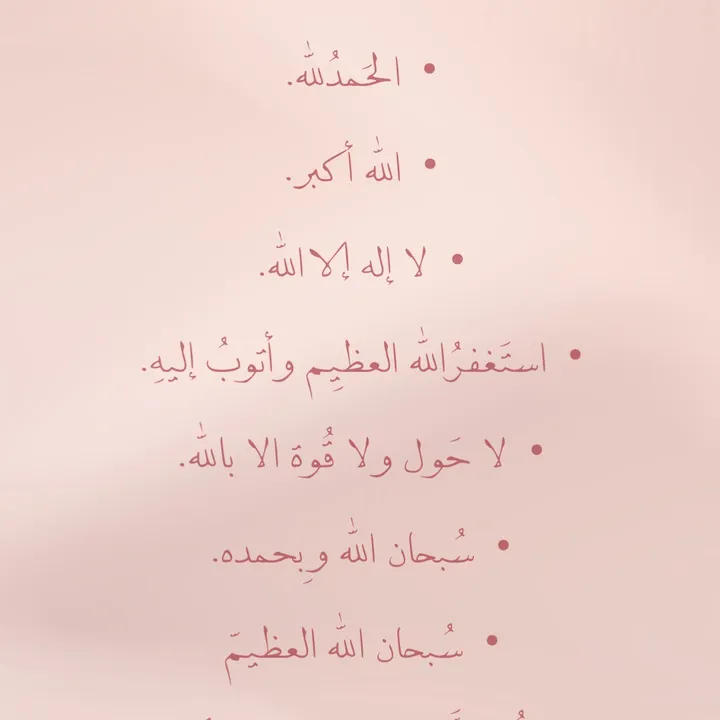 • الحَمدُلله.
• الله أكبر.
• لا إله إلا الله.
• استَغفرُالله العظيِم وأتوبُ إليهِ.
• لا حَول ولا قُوة الا بالله.
• سُبحان الله وبِحمده.
• سُبحان الله العظيمّ